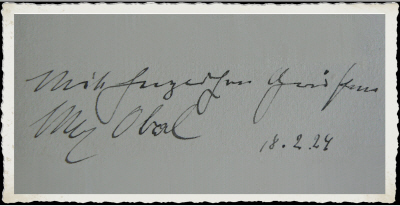 Mit herzlichen Grüßen
Max Obal
18.2.24